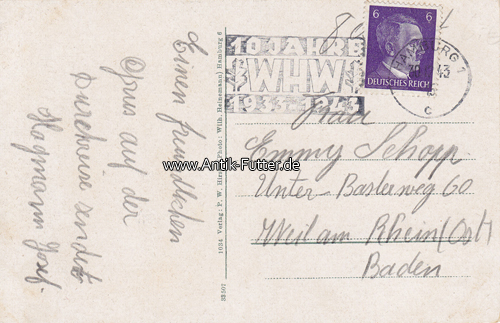 Einen freundlichen
Gruss auf der
Durchreise sendet
Hagmann Josef.
10 JAHRE
WHW
1933-1943
6 6
DEUTSCHES REICH
HAMBURG 1
43
c
Frau
Emmy Schopp
Unter-Baslerweg 60
Weil am Rhein (Ost)
Baden
www.Antik-Futter.de
1034 Verlag: P. W.
Photo: Wilh. Heinemann) Hamburg 6